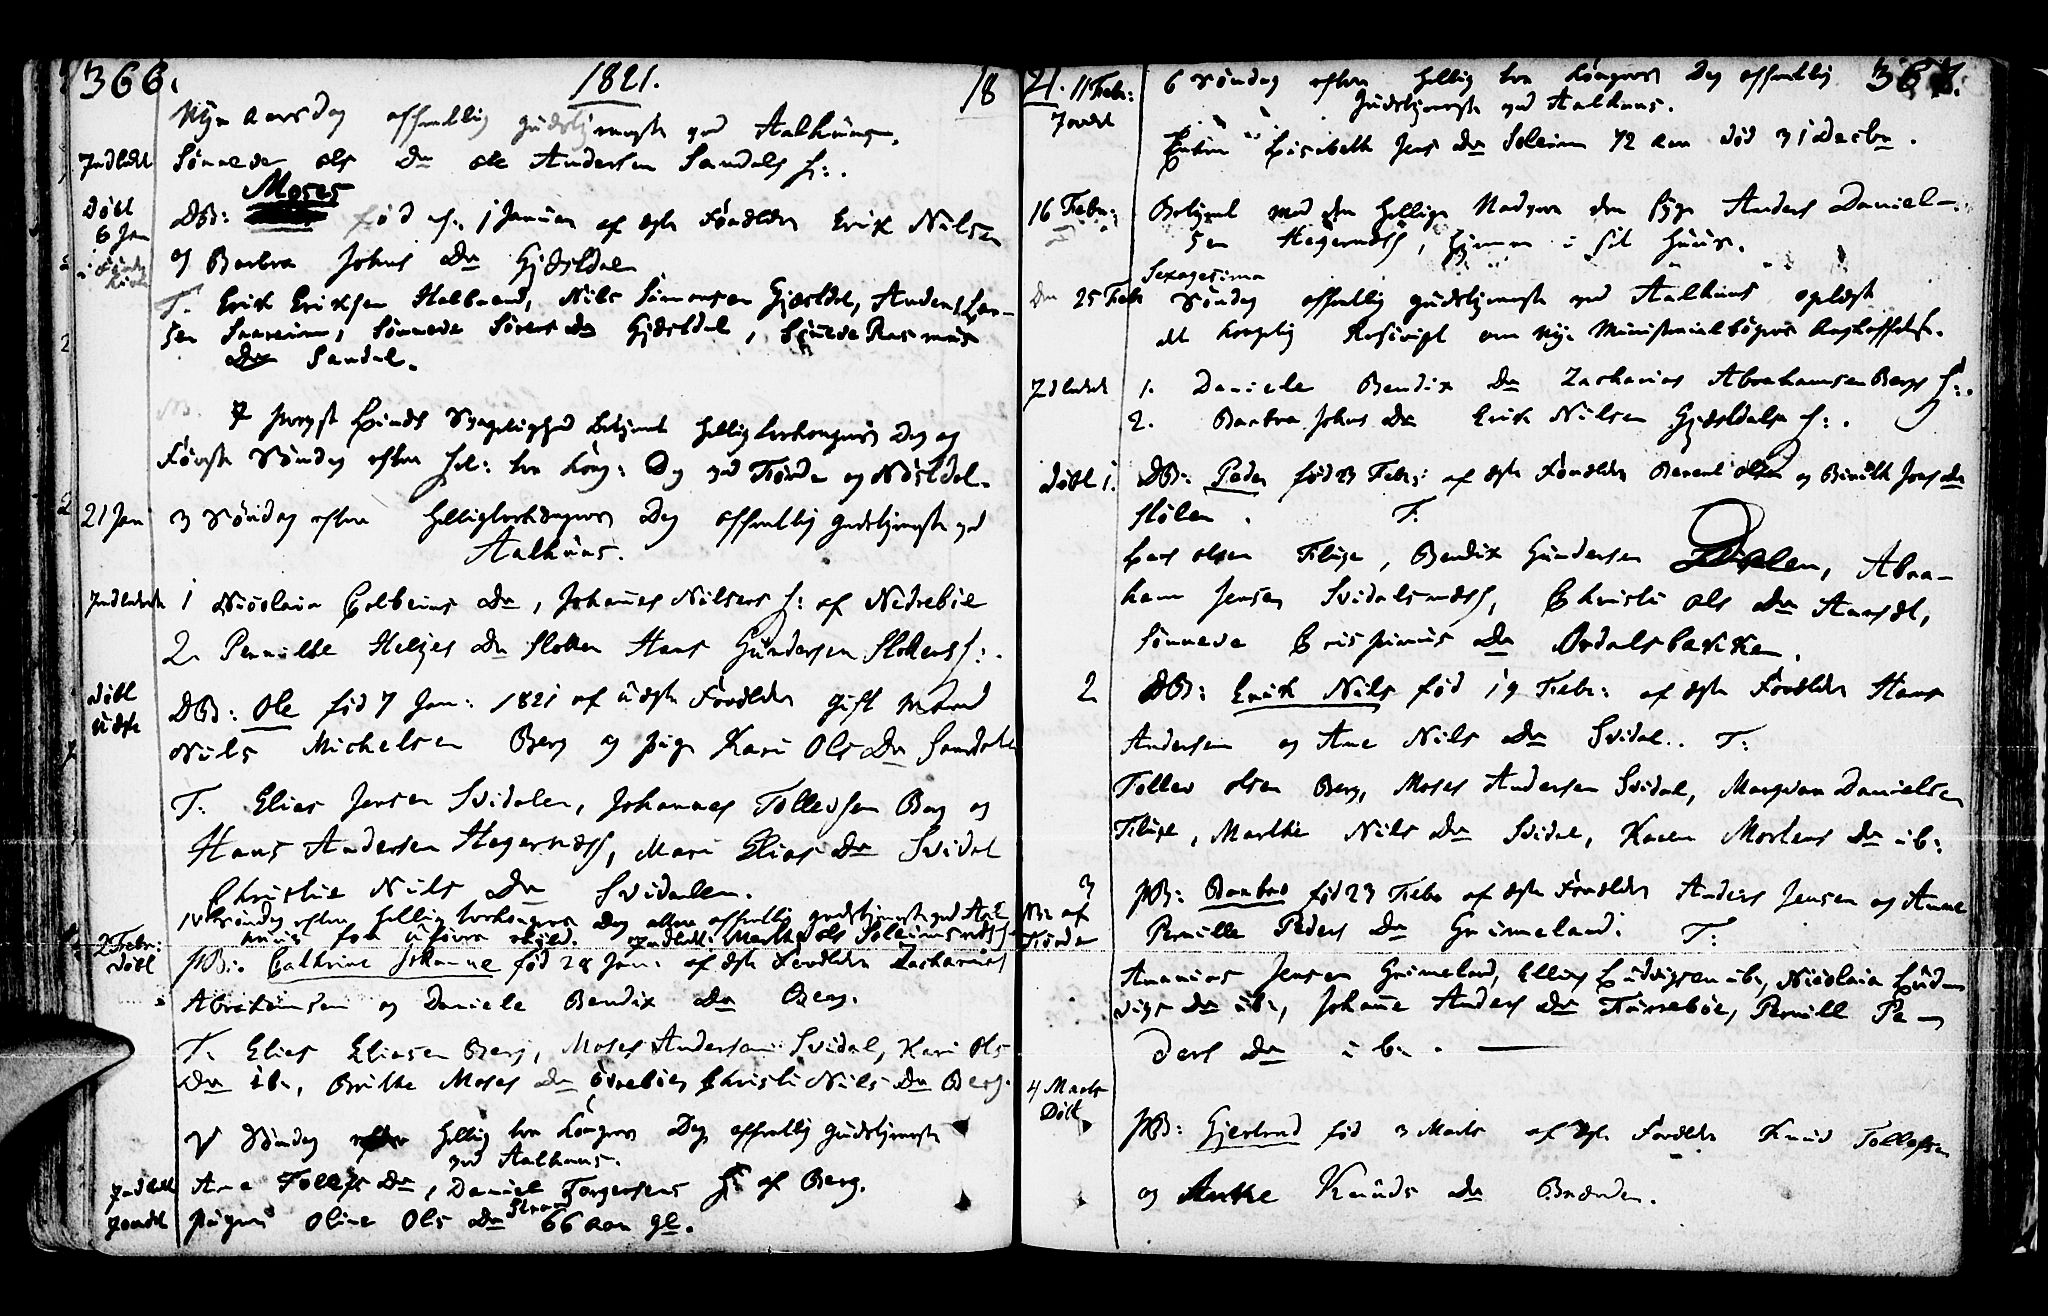 366.
1821.
18
Nyt aarsdag offentlig Gudstjeneste ved Aalhuus.
Indledt Sønneve Ols Dr Ole Andersen Sandals H:.
Døbt
6 Jan
Moses
DB: fød d. 1 Januar af ægte Forældre Erik Nilsen
og Barbra Johns Dr Gjesdal
T. Erik Eriksen Halbrend, Nils Simonsen Gjesdal, Anders Lar-
sen Saareim, Sønneve Sivers Dr Gjesdal, Rasmus
Dr Sandal.
NB. Provst Linds Sygelighed betjent Helligtrekongers Dag og
Første Søndag efter Hel: tre Kong: Dag ved Førde og Nøstdal.
21 Jan 3 Søndag efter Helligtrekongers Dag offentlig Gudstjeneste ved
Aalhuus.
Indledede 1 Nicolaia Colbeins Dr, Johannes Nilsens H: af Nedrebøe
2. Pernille Helges Dr Flotten Hans Gundersen Flottens H:.
Døbt
uægte
DB: Ole fød 7 Jan: 1821 af uægte Forældre gift Mand
Nils Michelsen Berg og pige Kari Ols Dr Sandal
T: Elias Jensen Svidalen, Johannes Tollevsen Berg og
Hans Andersen Hegernæss, Mari Elias Dr Svidal
Christie Nils Dr Svidalen.
IV Søndag efter Hellig trekongers Dag atter offentlig gudstjeneste ved Aal
huus for uføre skyld. Indledt: Marthe Ols Soleimsnæss
2 Febr:
Døbt
PB: Cathrine Johanne fød 28 Jan: af ægte Forældre Zacharias
Abrahamsen og Daniele Bendix Dr Berg.
T. Elias Eliasen Berg, Moses Andersen Svidal, Kari Ols
Dr ib., Brithe Moses Dr Øvrebøe, Christi Nils Dr Berg.
V Søndag efter Hellig tre Kongers Dag offentlig gudstjeneste
ved Aalhuus.
Indledt Ane Tolleфs Dr, Daniel Torgersens H: af Berg.
Jordet pigen Oline Ols Dr 66 Aar gl.
21. 11 Febr: 6 Søndag efter Hellig tre Kongers Dag offentlig 367.
Gudstjeneste ved Aalhuus.
Jordet
Lisabeth Jens Dr Soleim 72 Aar død 31 Decbr.
16 Febr: Betjent med den hellige Nadvere den syge Anders Daniel-
sen Hegernæss, hjemme i sit Huus.
Sexagesima
Den 25 Febr Søndag offentlig gudstjeneste ved Aalhuus oplæst
det kongelig Rescript om nye Ministerialbøgers Anskaffelse.
Idledede 1. Daniele Bendix Dr Zacharias Abrahamsen Bergs H:.
2. Barbra Johns Dr Erik Nilsen Gjesdals H:.
Døbt 1. DB: Peder fød 23 Febr: af ægte Forældre Berent Olsen og Birith Jens Dr
Stølen. T:
Lars Olsen Flüge, Bendix Gundersen Dvalen, Abra-
ham Jensen Svidalsnæss, Christi Ols Dr Aarsæt,
Sønneve Crispinus Dr Ordalsbakken.
2 DB: Erik Nils fød 19 Febr: af ægte Forældre Hans
Andersen og Ane Nils Dr Svidal. T:
Tollev Olsen Berg, Moses Andersen Svidal, Danielsen
Flüge, Marthe Nils Dr Svidal, Karen Mortens Dr ib:
3
Førde
PB: Barbro fød 23 Febr af ægte Forældre Anders Jensen og Anne
Pernille Peders Dr Grimeland: T:
Ananias Jensen Grimeland, Elling Ludvigsen ib., Nicolaia Lud-
vigs Dr ib., Johanne Anders Dr Farsebøe, Pernill Pe-
ders Dr ib.
4 Marts
Døbt
PB: Gjertrud fød 3 Marts af ægte Forældre Knud Tollefsen
og Anthe Knuds Dr Brænden.